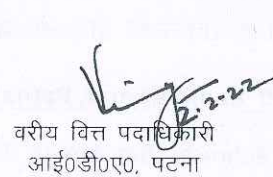 2.2.22
वरीय वित्त पदाधिकारी
आई०डी०ए०, पटना